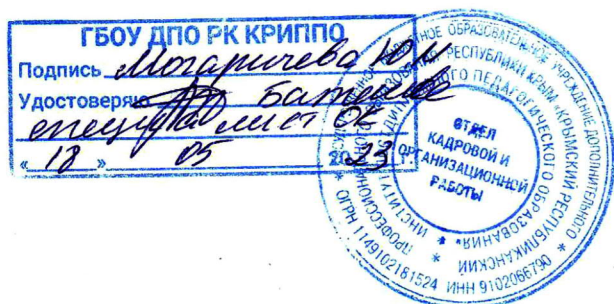 ГБОУ ДПО РК КРИППО
Подпись Могаричева Ю.М
Удостоверяю
специалист ОК
« 18 » 05 2023
ОБРАЗОВАТЕЛЬНОЕ УЧРЕЖДЕНИЕ ДОПОЛНИТЕЛЬНОГО
ПРОФЕССИОНАЛЬНОГО ОБРАЗОВАНИЯ РЕСПУБЛИКИ КРЫМ «КРЫМСКИЙ РЕСПУБЛИКАНСКИЙ
ИНСТИТУТ ПЕДАГОГИЧЕСКОГО ОБРАЗОВАНИЯ»
ОГРН 1149102181524 ИНН 9102066790
ОТДЕЛ
КАДРОВОЙ И
ОРГАНИЗАЦИОННОЙ
РАБОТЫ